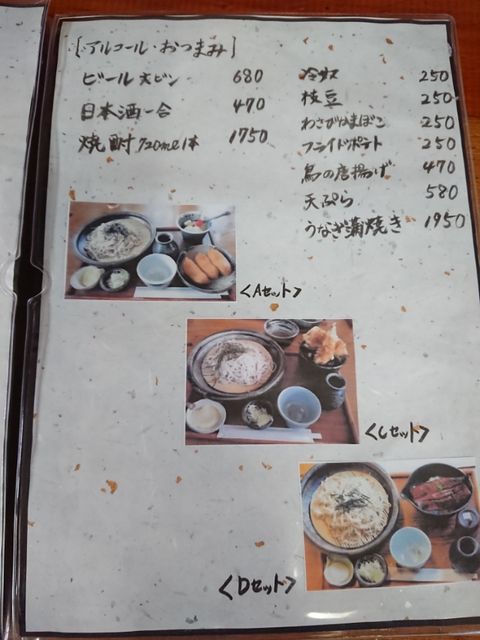 [アルコール・おつまみ]
ビール大ビン 680
日本酒一合 470
焼酎720ml1本 1750
冷奴 250
枝豆 250
わさびかまぼこ 250
フライドポテト 250
鳥の唐揚げ 470
天ぷら 580
うなぎ蒲焼き 1950
<Aセット>
<Cセット>
<Dセット>